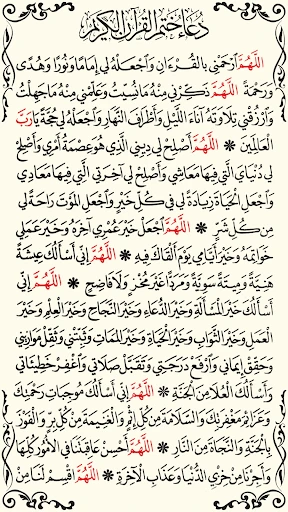 دُعَاءُ خَتْمِ الْقُرْآنِ الْكَرِيمِ
اللَّهُمَّ ارْحَمْنِي بِالْقُرْءَانِ وَاجْعَلْهُ لِي إِمَامًا وَنُورًا وَهُدًى
وَرَحْمَةً اللَّهُمَّ ذَكِّرْنِي مِنْهُ مَا نَسِيتُ وَعَلِّمْنِي مِنْهُ مَا جَهِلْتُ
وَارْزُقْنِي تِلَاوَتَهُ آنَاءَ اللَّيْلِ وَأَطْرَافَ النَّهَارِ وَاجْعَلْهُ لِي حُجَّةً يَا رَبَّ
الْعَالَمِينَ * اللَّهُمَّ أَصْلِحْ لِي دِينِي الَّذِي هُوَ عِصْمَةُ أَمْرِي وَأَصْلِحْ
لِي دُنْيَايَ الَّتِي فِيهَا مَعَاشِي وَأَصْلِحْ لِي آخِرَتِي الَّتِي فِيهَا مَعَادِي
وَاجْعَلِ الْحَيَاةَ زِيَادَةً لِي فِي كُلِّ خَيْرٍ وَاجْعَلِ الْمَوْتَ رَاحَةً لِي
مِنْ كُلِّ شَرٍّ * اللَّهُمَّ اجْعَلْ خَيْرَ عُمُرِي آخِرَهُ وَخَيْرَ عَمَلِي
خَوَاتِمَهُ وَخَيْرَ أَيَّامِي يَوْمَ أَلْقَاكَ فِيهِ * اللَّهُمَّ إِنِّي أَسْأَلُكَ عِيشَةً
هَنِيَّةً وَمِيتَةً سَوِيَّةً وَمَرَدًّا غَيْرَ مُخْزٍ وَلَا فَاضِحٍ * اللَّهُمَّ إِنِّي
أَسْأَلُكَ خَيْرَ الْمَسْأَلَةِ وَخَيْرَ الدُّعَاءِ وَخَيْرَ النَّجَاحِ وَخَيْرَ الْعِلْمِ وَخَيْرَ
الْعَمَلِ وَخَيْرَ الثَّوَابِ وَخَيْرَ الْحَيَاةِ وَخَيْرَ الْمَمَاتِ وَثَبِّتْنِي وَثَقِّلْ مَوَازِينِي
وَحَقِّقْ إِيمَانِي وَارْفَعْ دَرَجَتِي وَتَقَبَّلْ صَلَاتِي وَاغْفِرْ خَطِيئَاتِي
وَأَسْأَلُكَ الْعُلَا مِنَ الْجَنَّةِ * اللَّهُمَّ إِنِّي أَسْأَلُكَ مُوجِبَاتِ رَحْمَتِكَ
وَعَزَائِمَ مَغْفِرَتِكَ وَالسَّلَامَةَ مِنْ كُلِّ إِثْمٍ وَالْغَنِيمَةَ مِنْ كُلِّ بِرٍّ وَالْفَوْزَ
بِالْجَنَّةِ وَالنَّجَاةَ مِنَ النَّارِ * اللَّهُمَّ أَحْسِنْ عَاقِبَتَنَا فِي الْأُمُورِ كُلِّهَا
وَأَجِرْنَا مِنْ خِزْيِ الدُّنْيَا وَعَذَابِ الْآخِرَةِ * اللَّهُمَّ اقْسِمْ لَنَا مِنْ